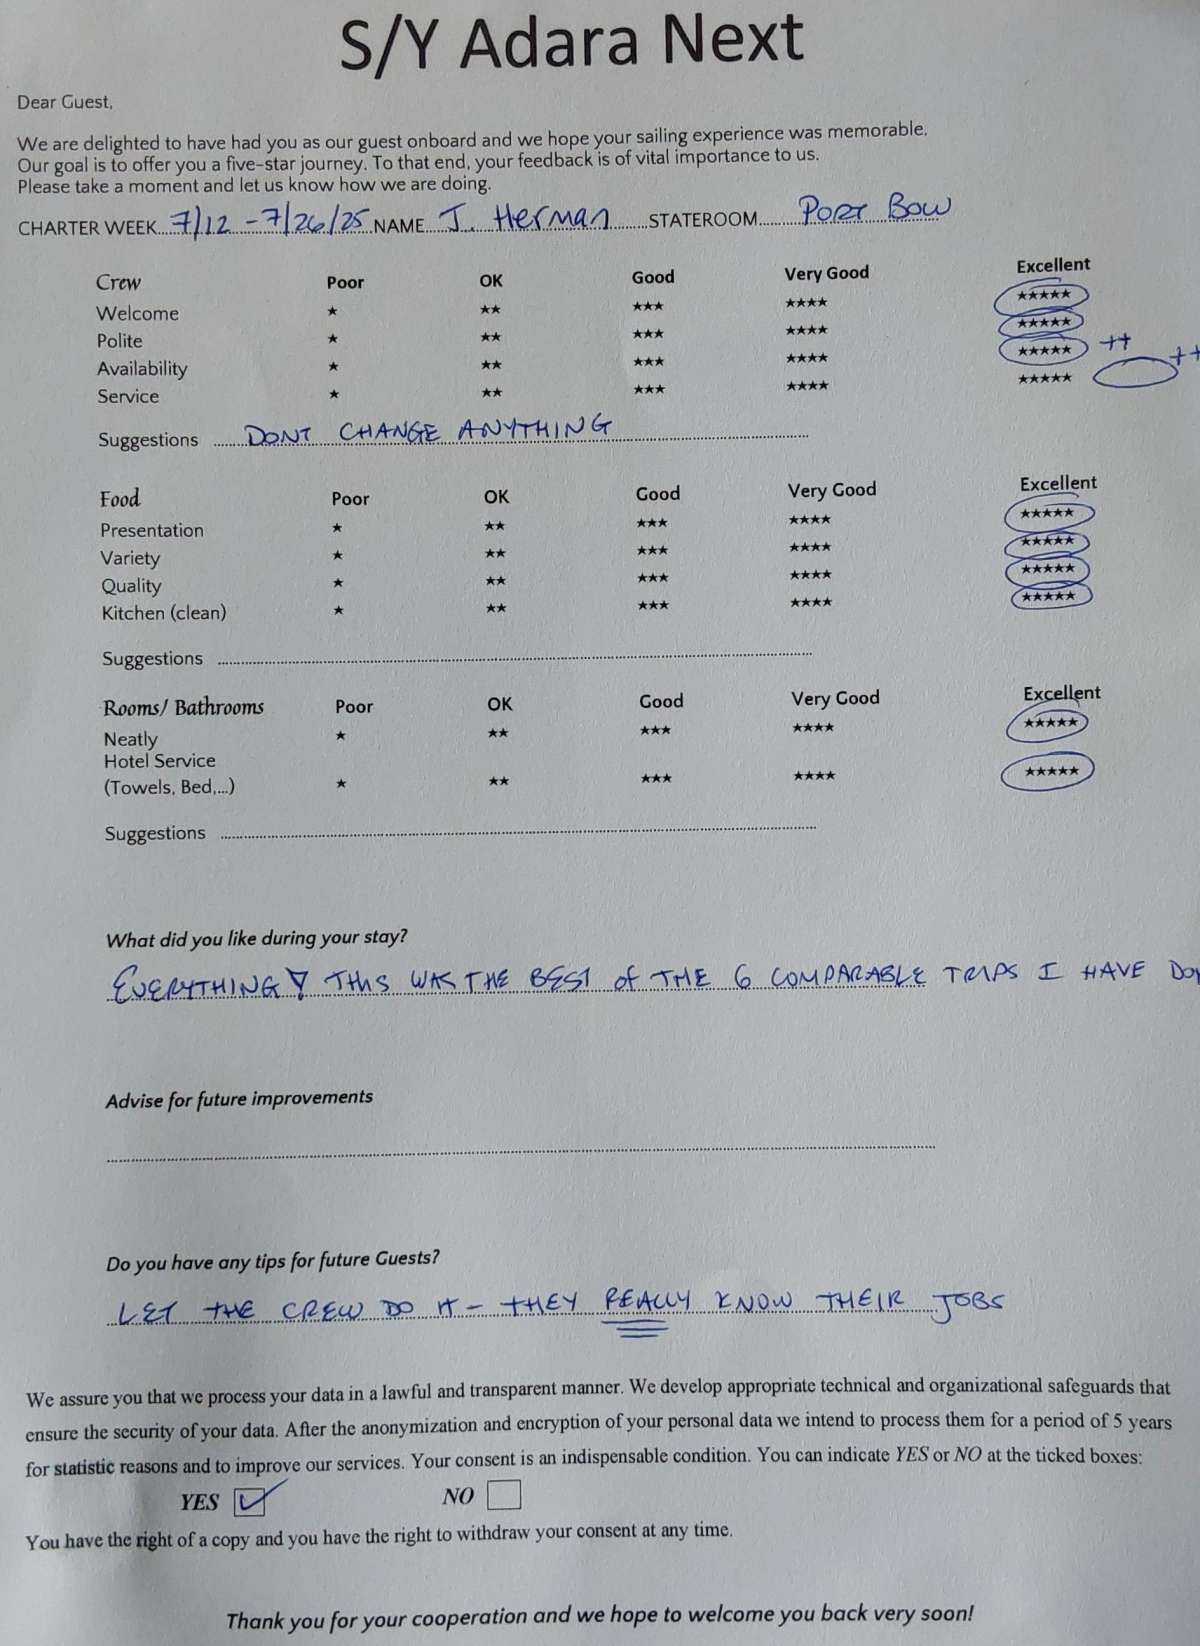 S/Y Adara Next
Dear Guest,
We are delighted to have had you as our guest onboard and we hope your sailing experience was memorable.
Our goal is to offer you a five-star journey. To that end, your feedback is of vital importance to us.
Please take a moment and let us know how we are doing.
CHARTER WEEK 7/12 - 7/26/25 NAME J. Herman STATEROOM PORT BOW
Crew Poor OK Good Very Good Excellent
Welcome ★ ★★ ★★★ ★★★★ ★★★★★
Polite ★ ★★ ★★★ ★★★★ ★★★★★
Availability ★ ★★ ★★★ ★★★★ ★★★★★ ++
Service ★ ★★ ★★★ ★★★★ ★★★★★ ++
Suggestions DONT CHANGE ANYTHING
Food Poor OK Good Very Good Excellent
Presentation ★ ★★ ★★★ ★★★★ ★★★★★
Variety ★ ★★ ★★★ ★★★★ ★★★★★
Quality ★ ★★ ★★★ ★★★★ ★★★★★
Kitchen (clean) ★ ★★ ★★★ ★★★★ ★★★★★
Suggestions
Rooms/ Bathrooms Poor OK Good Very Good Excellent
Neatly ★ ★★ ★★★ ★★★★ ★★★★★
Hotel Service
(Towels, Bed,...) ★ ★★ ★★★ ★★★★ ★★★★★
Suggestions
What did you like during your stay?
EVERYTHING! THIS WAS THE BEST of THE 6 COMPARABLE TRIPS I HAVE DO
Advise for future improvements
Do you have any tips for future Guests?
LET THE CREW DO IT - THEY REALLY KNOW THEIR JOBS
We assure you that we process your data in a lawful and transparent manner. We develop appropriate technical and organizational safeguards that
ensure the security of your data. After the anonymization and encryption of your personal data we intend to process them for a period of 5 years
for statistic reasons and to improve our services. Your consent is an indispensable condition. You can indicate YES or NO at the ticked boxes:
YES ✓ NO
You have the right of a copy and you have the right to withdraw your consent at any time.
Thank you for your cooperation and we hope to welcome you back very soon!